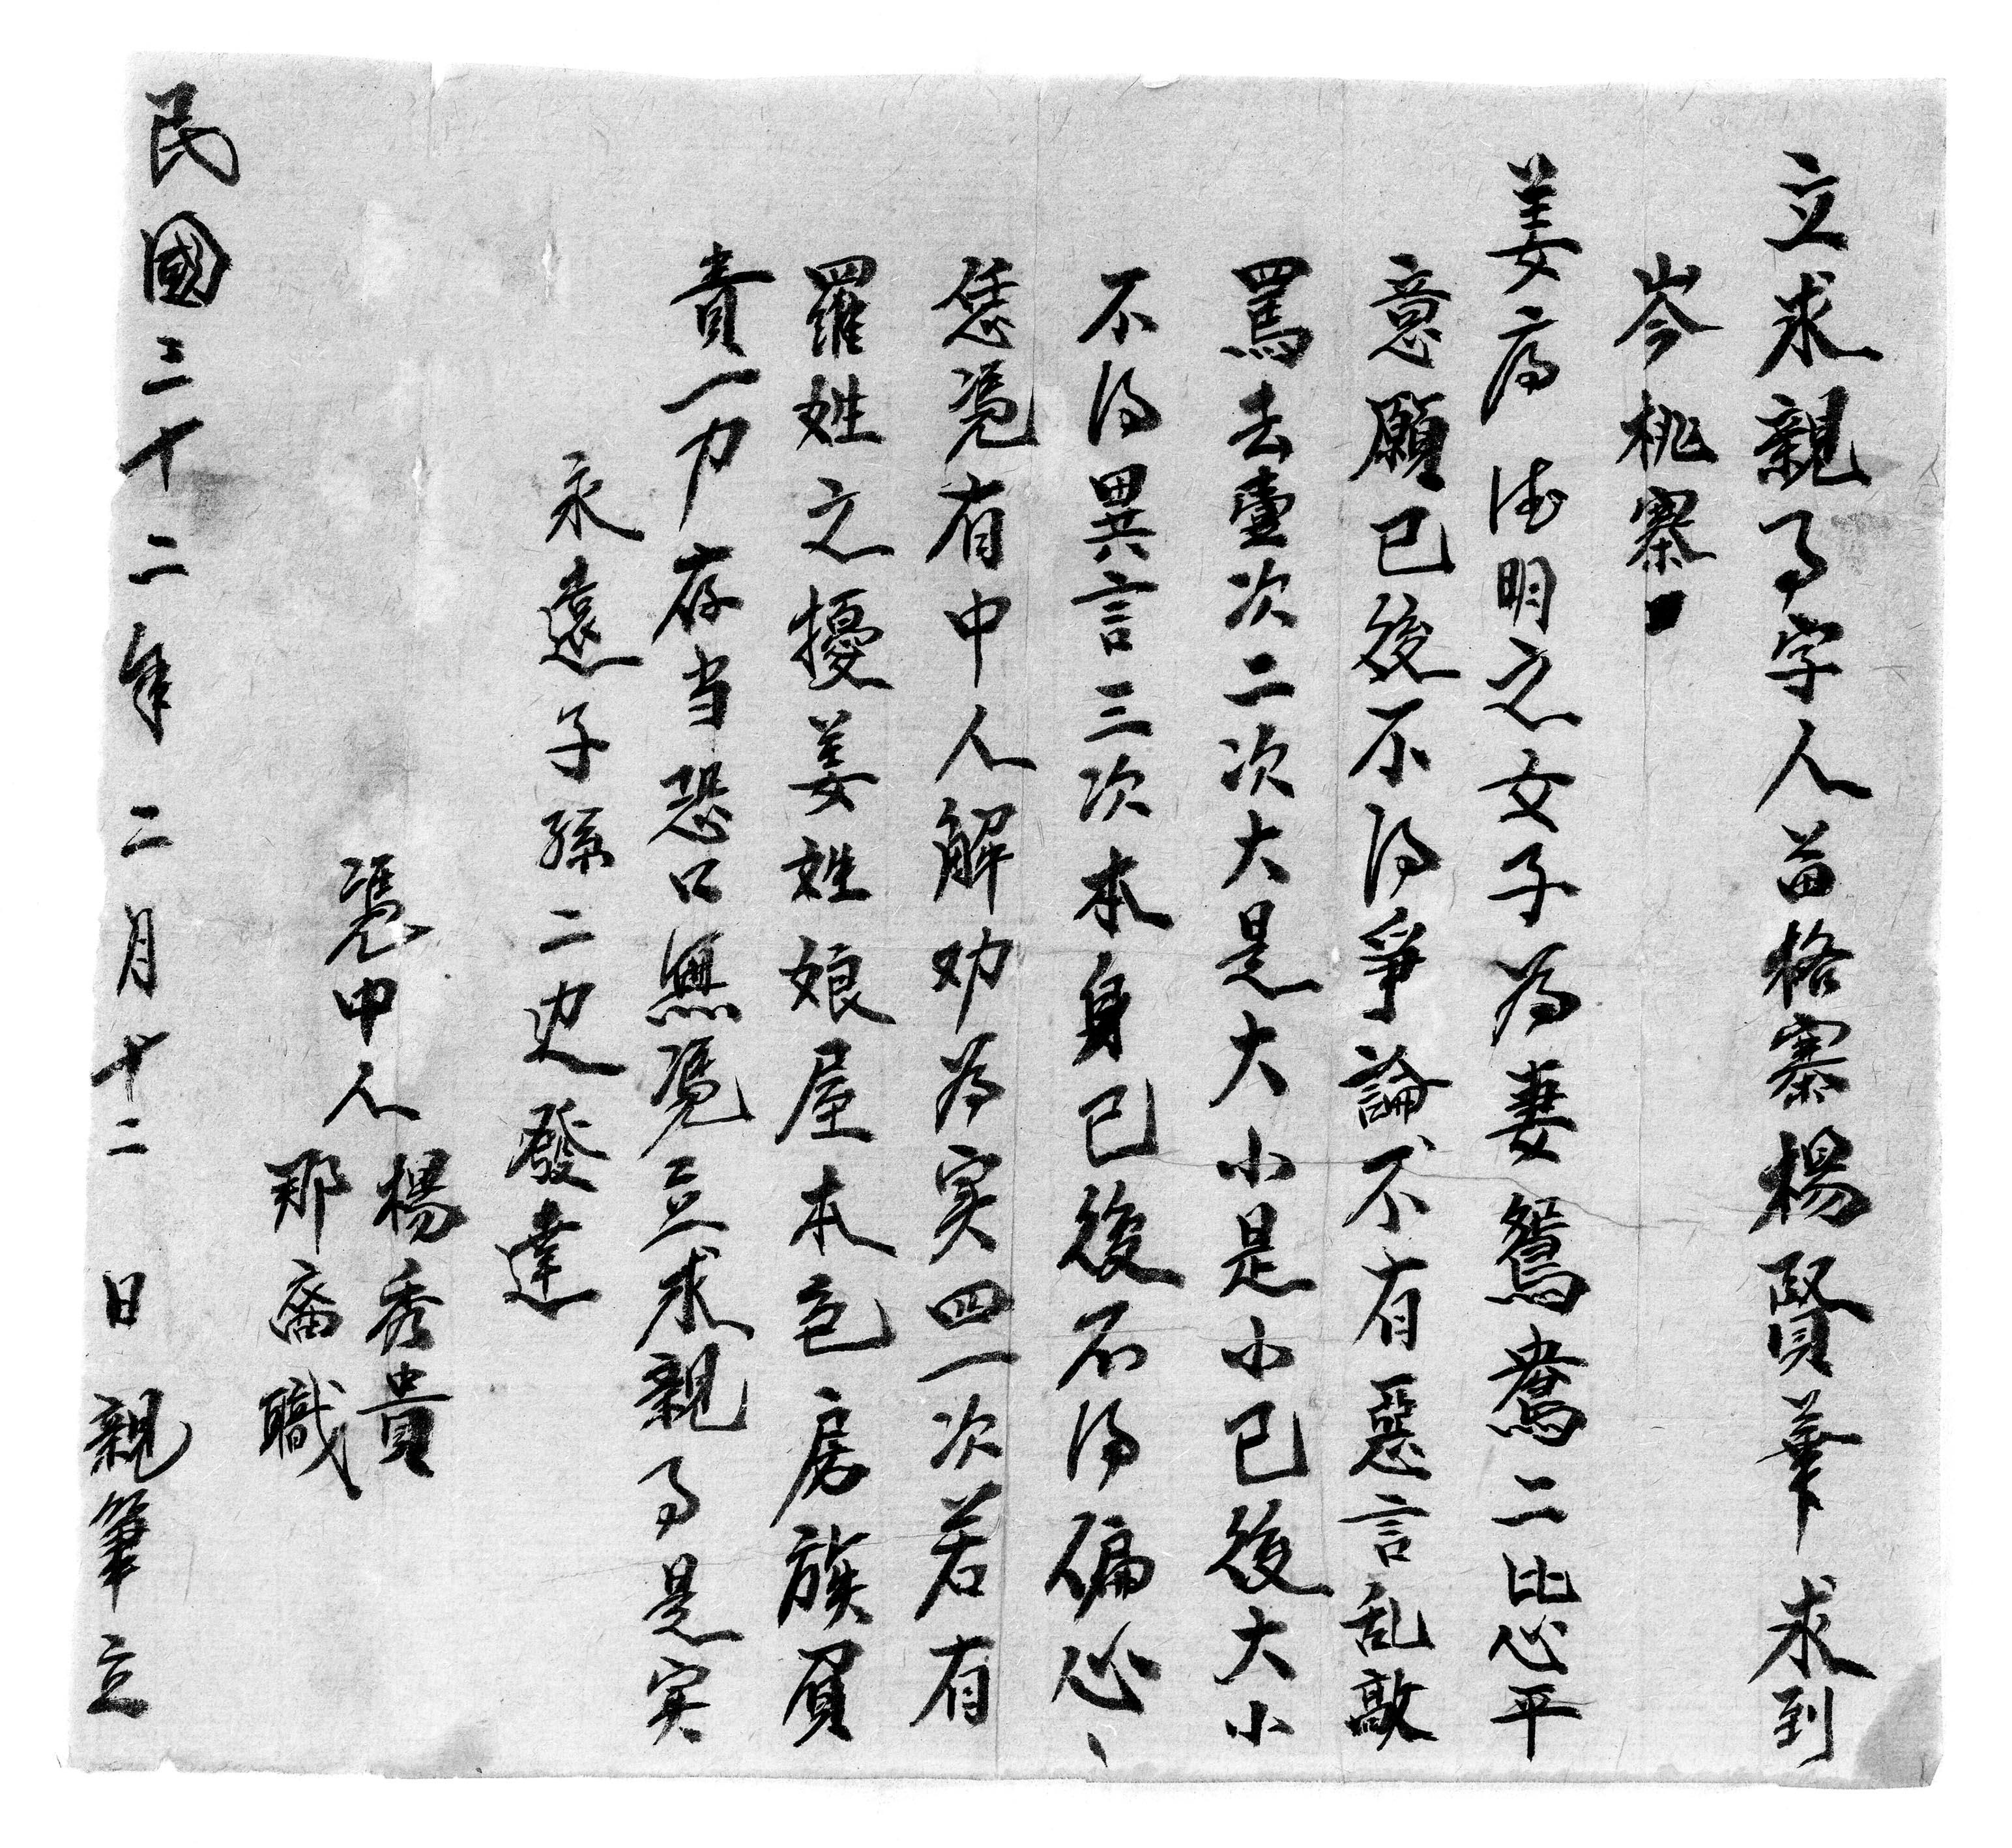 立求親事字人苗格寨楊賢華求到
岑桃寨
姜府德明之女子為妻鴛鴦二比心平
意願已後不得爭論不有惡言乱敲
罵去壹次二次大是大小是小已後大小
不得異言三次本身已後不得偏心
恁凴有中人解劝為实四一次若有
羅姓之擾姜姓娘屋本色房族負
責一力存当恐口無凴立求親事是实
永遠子孫二边發達
凴中人 楊秀貴
職
民國三十二年二月十二日親筆立